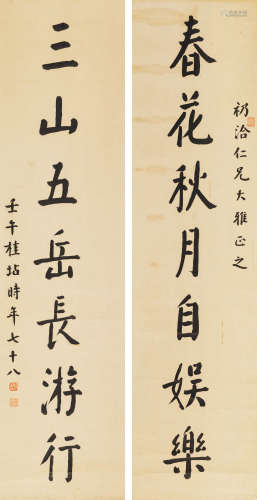 礽洽仁兄大雅正之
春花秋月自娱樂
三山五岳長游行
壬午桂坫時年七十八